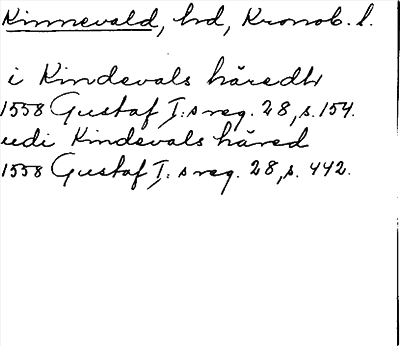 Kinnevald, hd, Kronob. l.
i Kindevals häredh
1558 Gustaf I:s reg. 28, s. 154.
udi Kindevals häred
1558 Gustaf I:s reg. 28, s. 442.